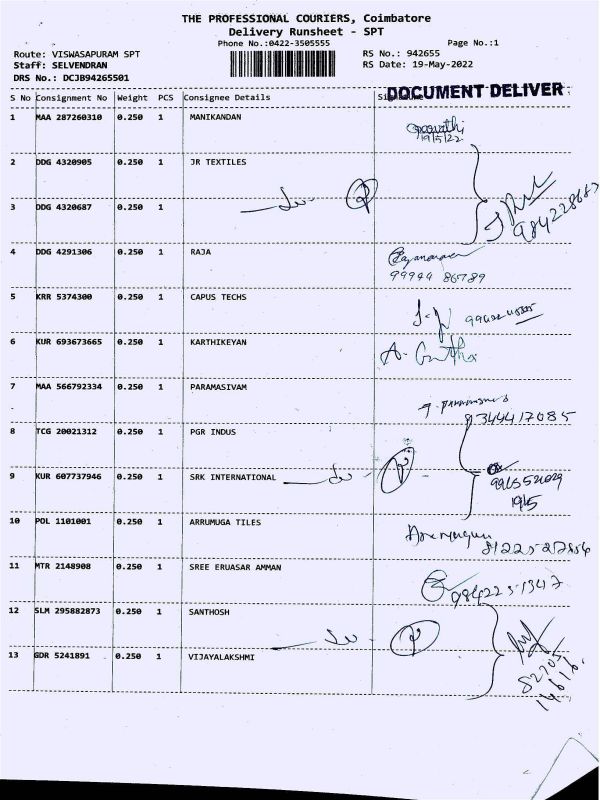 THE PROFESSIONAL COURIERS, Coimbatore
Delivery Runsheet - SPT
Phone No.:0422-3505555
Page No.:1
Route: VISWASAPURAM SPT
RS No.: 942655
Staff: SELVENDRAN
RS Date: 19-May-2022
DRS No.: DCJB94265501
DOCUMENT DELIVER
S No Consignment No Weight PCS Consignee Details
1 MAA 287260310 0.250 1 MANIKANDAN
19/5/22
2 DDG 4320905 0.250 1 JR TEXTILES
3 DDG 4320687 0.250 1
4 DDG 4291306 0.250 1 RAJA
99944 86789
5 KRR 5374300 0.250 1 CAPUS TECHS
6 KUR 693673665 0.250 1 KARTHIKEYAN
7 MAA 566792334 0.250 1 PARAMASIVAM
9344417085
8 TCG 20021312 0.250 1 PGR INDUS
9 KUR 607737946 0.250 1 SRK INTERNATIONAL
19/5
10 POL 1101001 0.250 1 ARRUMUGA TILES
11 MTR 2148908 0.250 1 SREE ERUASAR AMMAN
12 SLM 295882873 0.250 1 SANTHOSH
13 GDR 5241891 0.250 1 VIJAYALAKSHMI